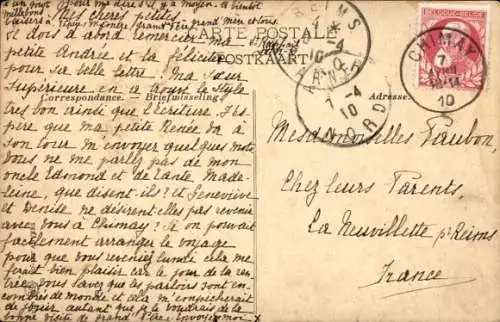 CARTE POSTALE
POSTKAART
Correspondance. — Briefwisseling
Adresse:
BELGIQUE-BELGIË
CHIMAY
7
10
REIMS
4
10
7-4
10
NORD
Si dois d'abord remercier ma
petite Andrée et la féliciter
pour sa belle lettre! Ma Sœur
Supérieure en a trouvé le style
très bon ainsi que l'écriture. J'es-
père que ma petite Renée va à
son tour m'envoyer quelques mots
Vous ne me parlez pas de mon
oncle Edmond et de tante Made-
leine, que disent-ils? et Geneviève
et Denise ne désirent-elles pas revenir
avec vous à Chimay? Si on pouvait
facilement arranger le voyage
pour que vous reveniez lundi cela me
ferait bien plaisir car le jour de la ren-
trée vous savez que les parloirs sont en-
combrés de monde et cela m'empêcherait
de jouir autant que je le voudrais de la
bonne visite de grand'Père. Envoyez-moi
Mesdemoiselles Faubon,
Chez leurs Parents,
La Neuvillette p. Reims
France